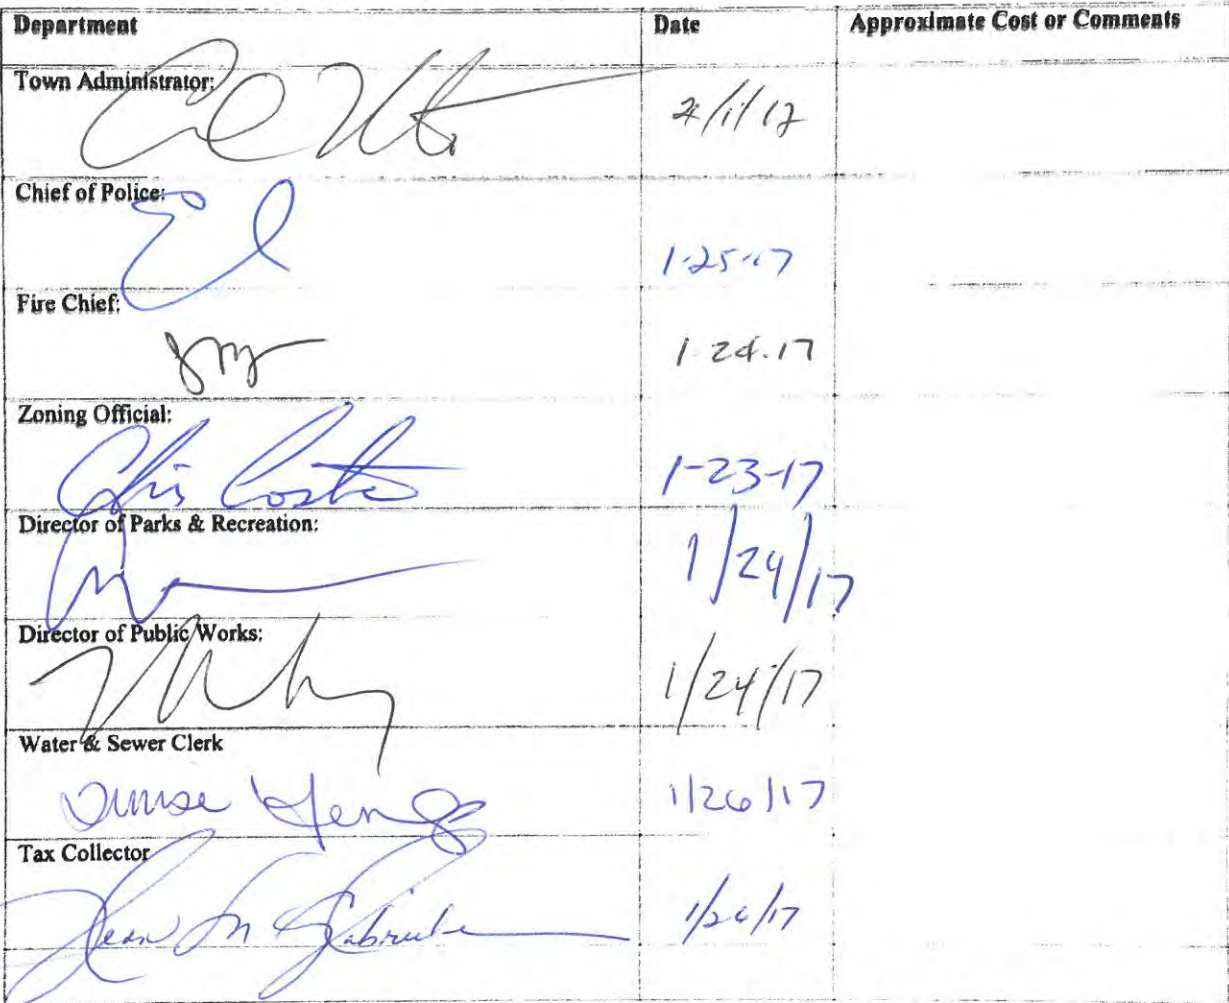 Department Date Approximate Cost or Comments
Town Administrator:
2/1/17
Chief of Police:
1-25-17
Fire Chief:
1-24-17
Zoning Official:
Chris Costa 1-23-17
Director of Parks & Recreation:
1/24/17
Director of Public Works:
1/24/17
Water & Sewer Clerk
Denise 1/26/17
Tax Collector
Jean M 1/26/17